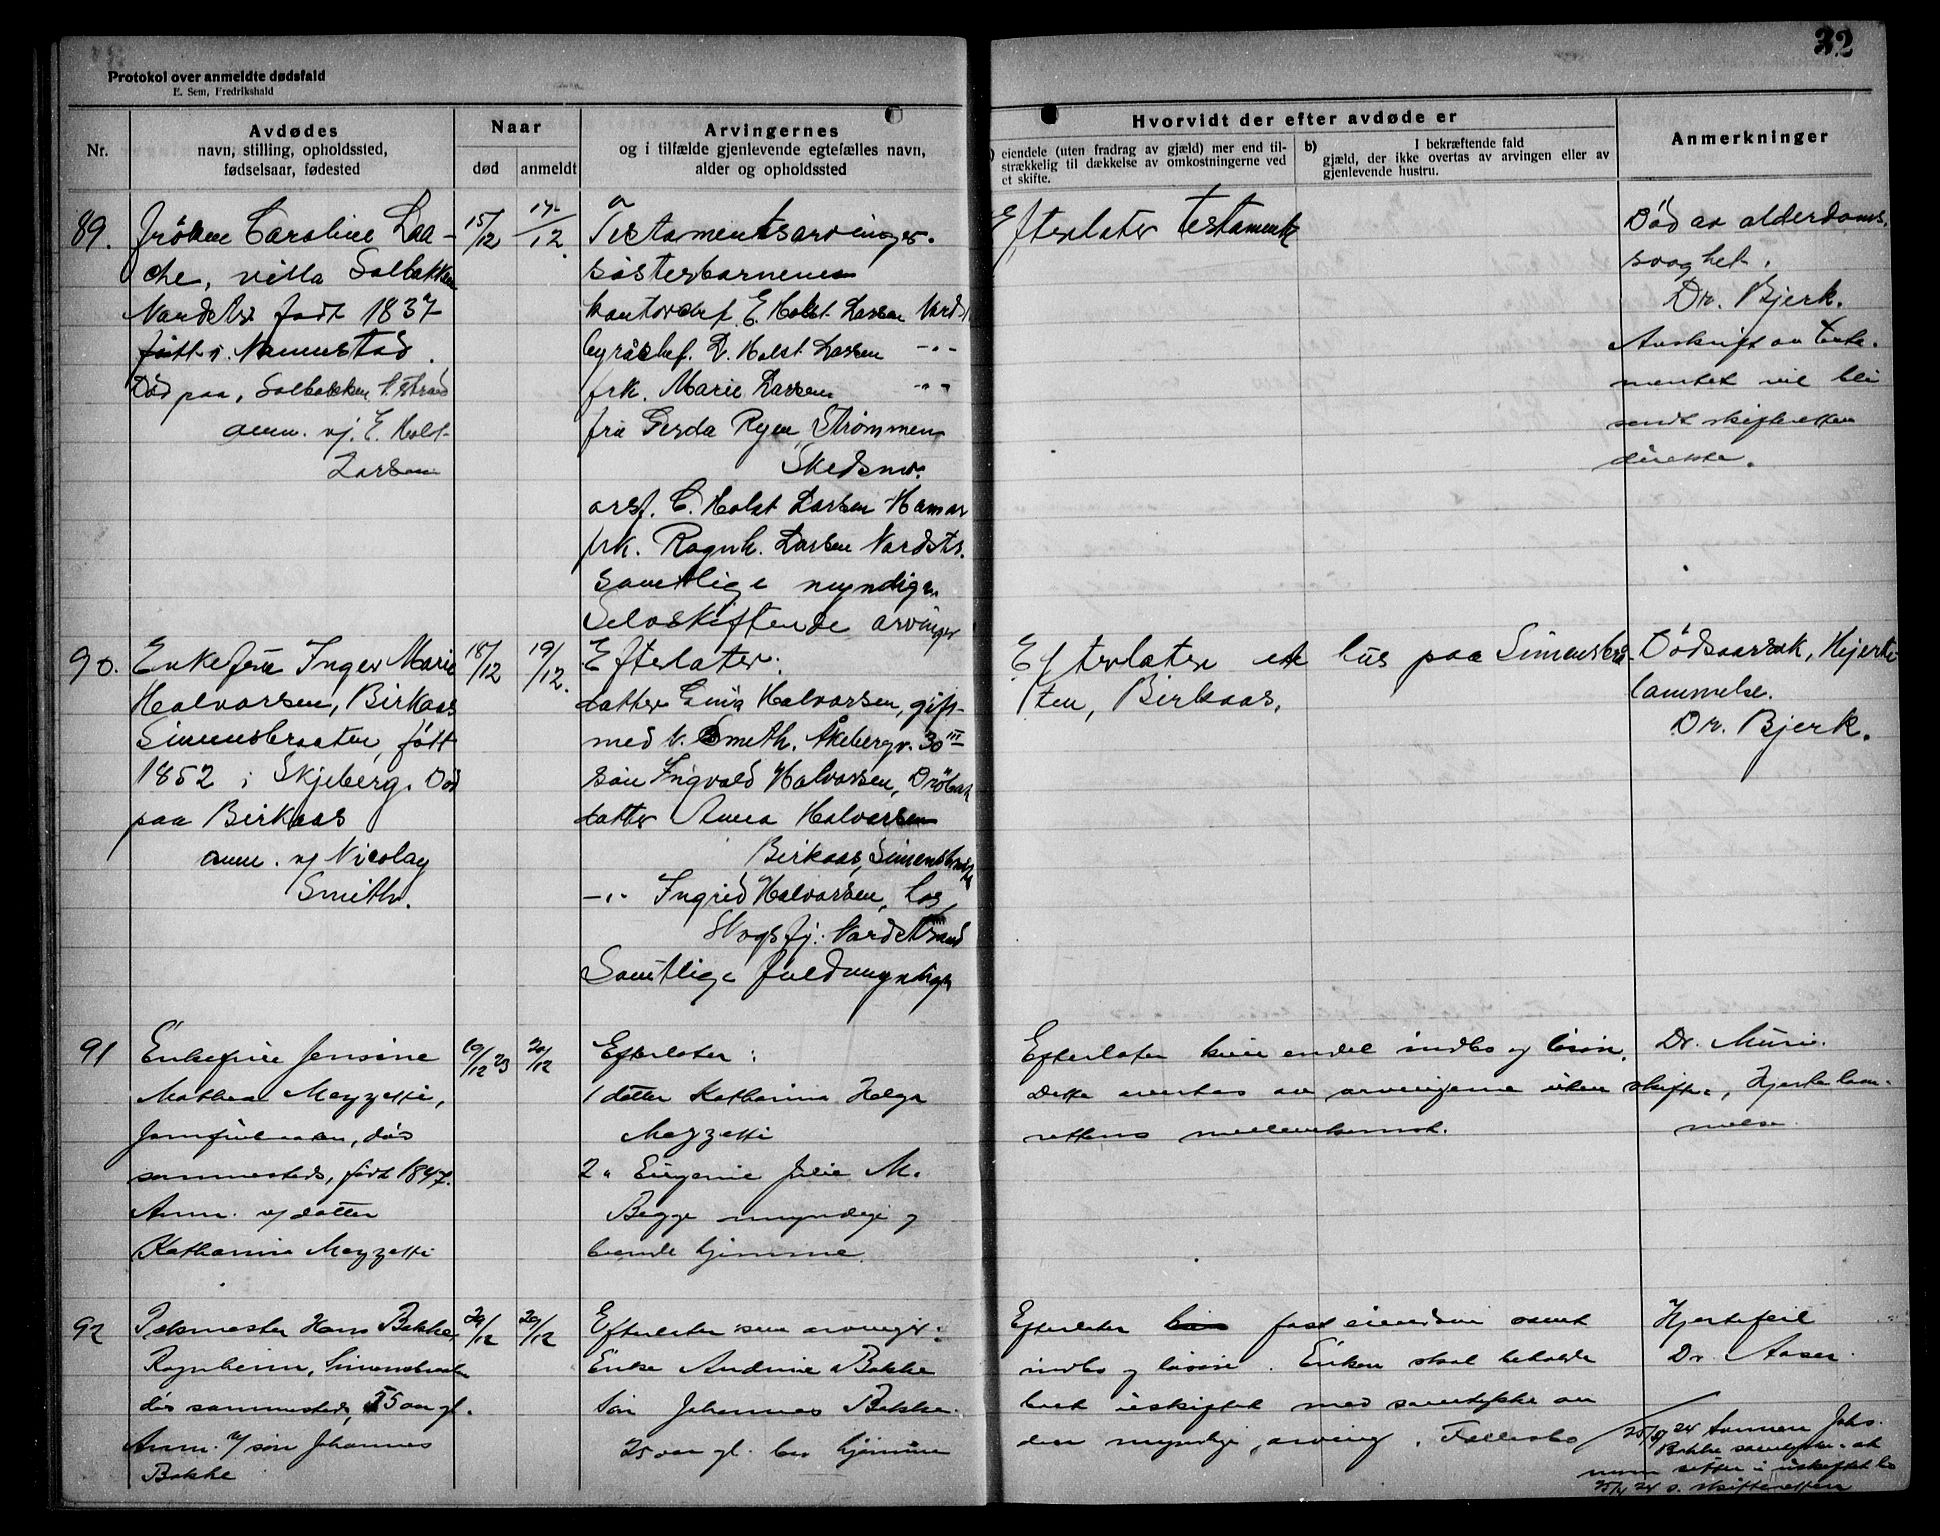 32
Protokol over anmeldte dødsfald
E. Sem, Fredrikshald
Nr.
Avdødes
navn, stilling, opholdssted,
fødselsaar, fødested
Naar
død
anmeldt
Arvingernes
og i tilfælde gjenlevende egtefælles navn,
alder og opholdssted
Hvorvidt der efter avdøde er
eiendele (uten fradrag av gjæld) mer end til-
strækkelig til dækkelse av omkostningerne ved
et skifte.
b) I bekræftende fald
gjæld, der ikke overtas av arvingen eller av
gjenlevende hustru.
Anmerkninger
89.
frøken Caroline Laa-
che, villa Solbakken
født 1837
i
Død paa, Solbakken
anm. v/ E. Holst-
Larsen
15/12
17/12.
Testamentsarvinger.
søsterbarnene
kontorchef E. Holst Larsen Nordst
byråchef. Holst Larsen -"-
frk. Marie Larsen -"-
fru Gerda Ryen Strømmen
Skedsmo.
C. Holst Larsen Hamar
frk. Ragnh. Larsen Nordstr.
samtlige myndige.
Selvskiftende arvinger
Efterlater testament
Død av alderdoms-
svaghet.
Dr. Bjerk.
Avskrift av testa-
mentet vil bli
sendt skifteretten
direkte.
90.
Enkefru Inger Marie
Halvorsen, Birkaas
Simensbraaten, født
1852 i Skjeberg. Død
paa Birkaas
anm. v/ Nicolay
Smith.
18/12
19/12.
Efterlater:
datter Halvorsen, gift
med N. Smith, Åkebergv. 30 III
søn Ingvald Halvorsen, Drøbak
datter Anna Halvorsen
Birkaas, Simensbraaten
-"- Ingrid Halvorsen,
Nordstrand
Samtlige fuldmyndige
Efterlater et hus paa Simensbra-
ten, Birkaas.
Dødsaarsak, Hjerte-
lammelse.
Dr. Bjerk.
91
Enkefrue Jensine
Mathea Mazzetti,
død
sammesteds, født 1847.
Anm. v/ datter
Katharina Mazzetti
19/12 23
20/12
Efterlater:
1 datter Katharina Helga
Mazzetti
2 " Eugenie Julie M.
Begge myndige og
boende hjemme
Efterlater kun endel indbo og løsøre.
Dette overtas av arvingerne uten skifte-
rettens mellemkomst.
Dr. Muri.
Hjertelam-
melse.
92
Hans Bakke,
Ragnheim, Simensbraaten
død sammesteds, 55 aar gl.
Anm. v/ søn Johannes
Bakke
29/12
29/12
Efterlater som arvinger:
Enke Andrine Bakke
Søn Johannes Bakke.
25 aar gl. bor hjemme
Efterlater fast eiendom samt
indbo og løsøre. Enken skal beholde
boet uskiftet med samtykke av
den myndige arving. Fællesbo
Hjertefeil
Dr. Aaser.
24 sønnen Johs.
Bakke samtykke. at
mor sitter i uskiftet bo
24 s. skifteretten